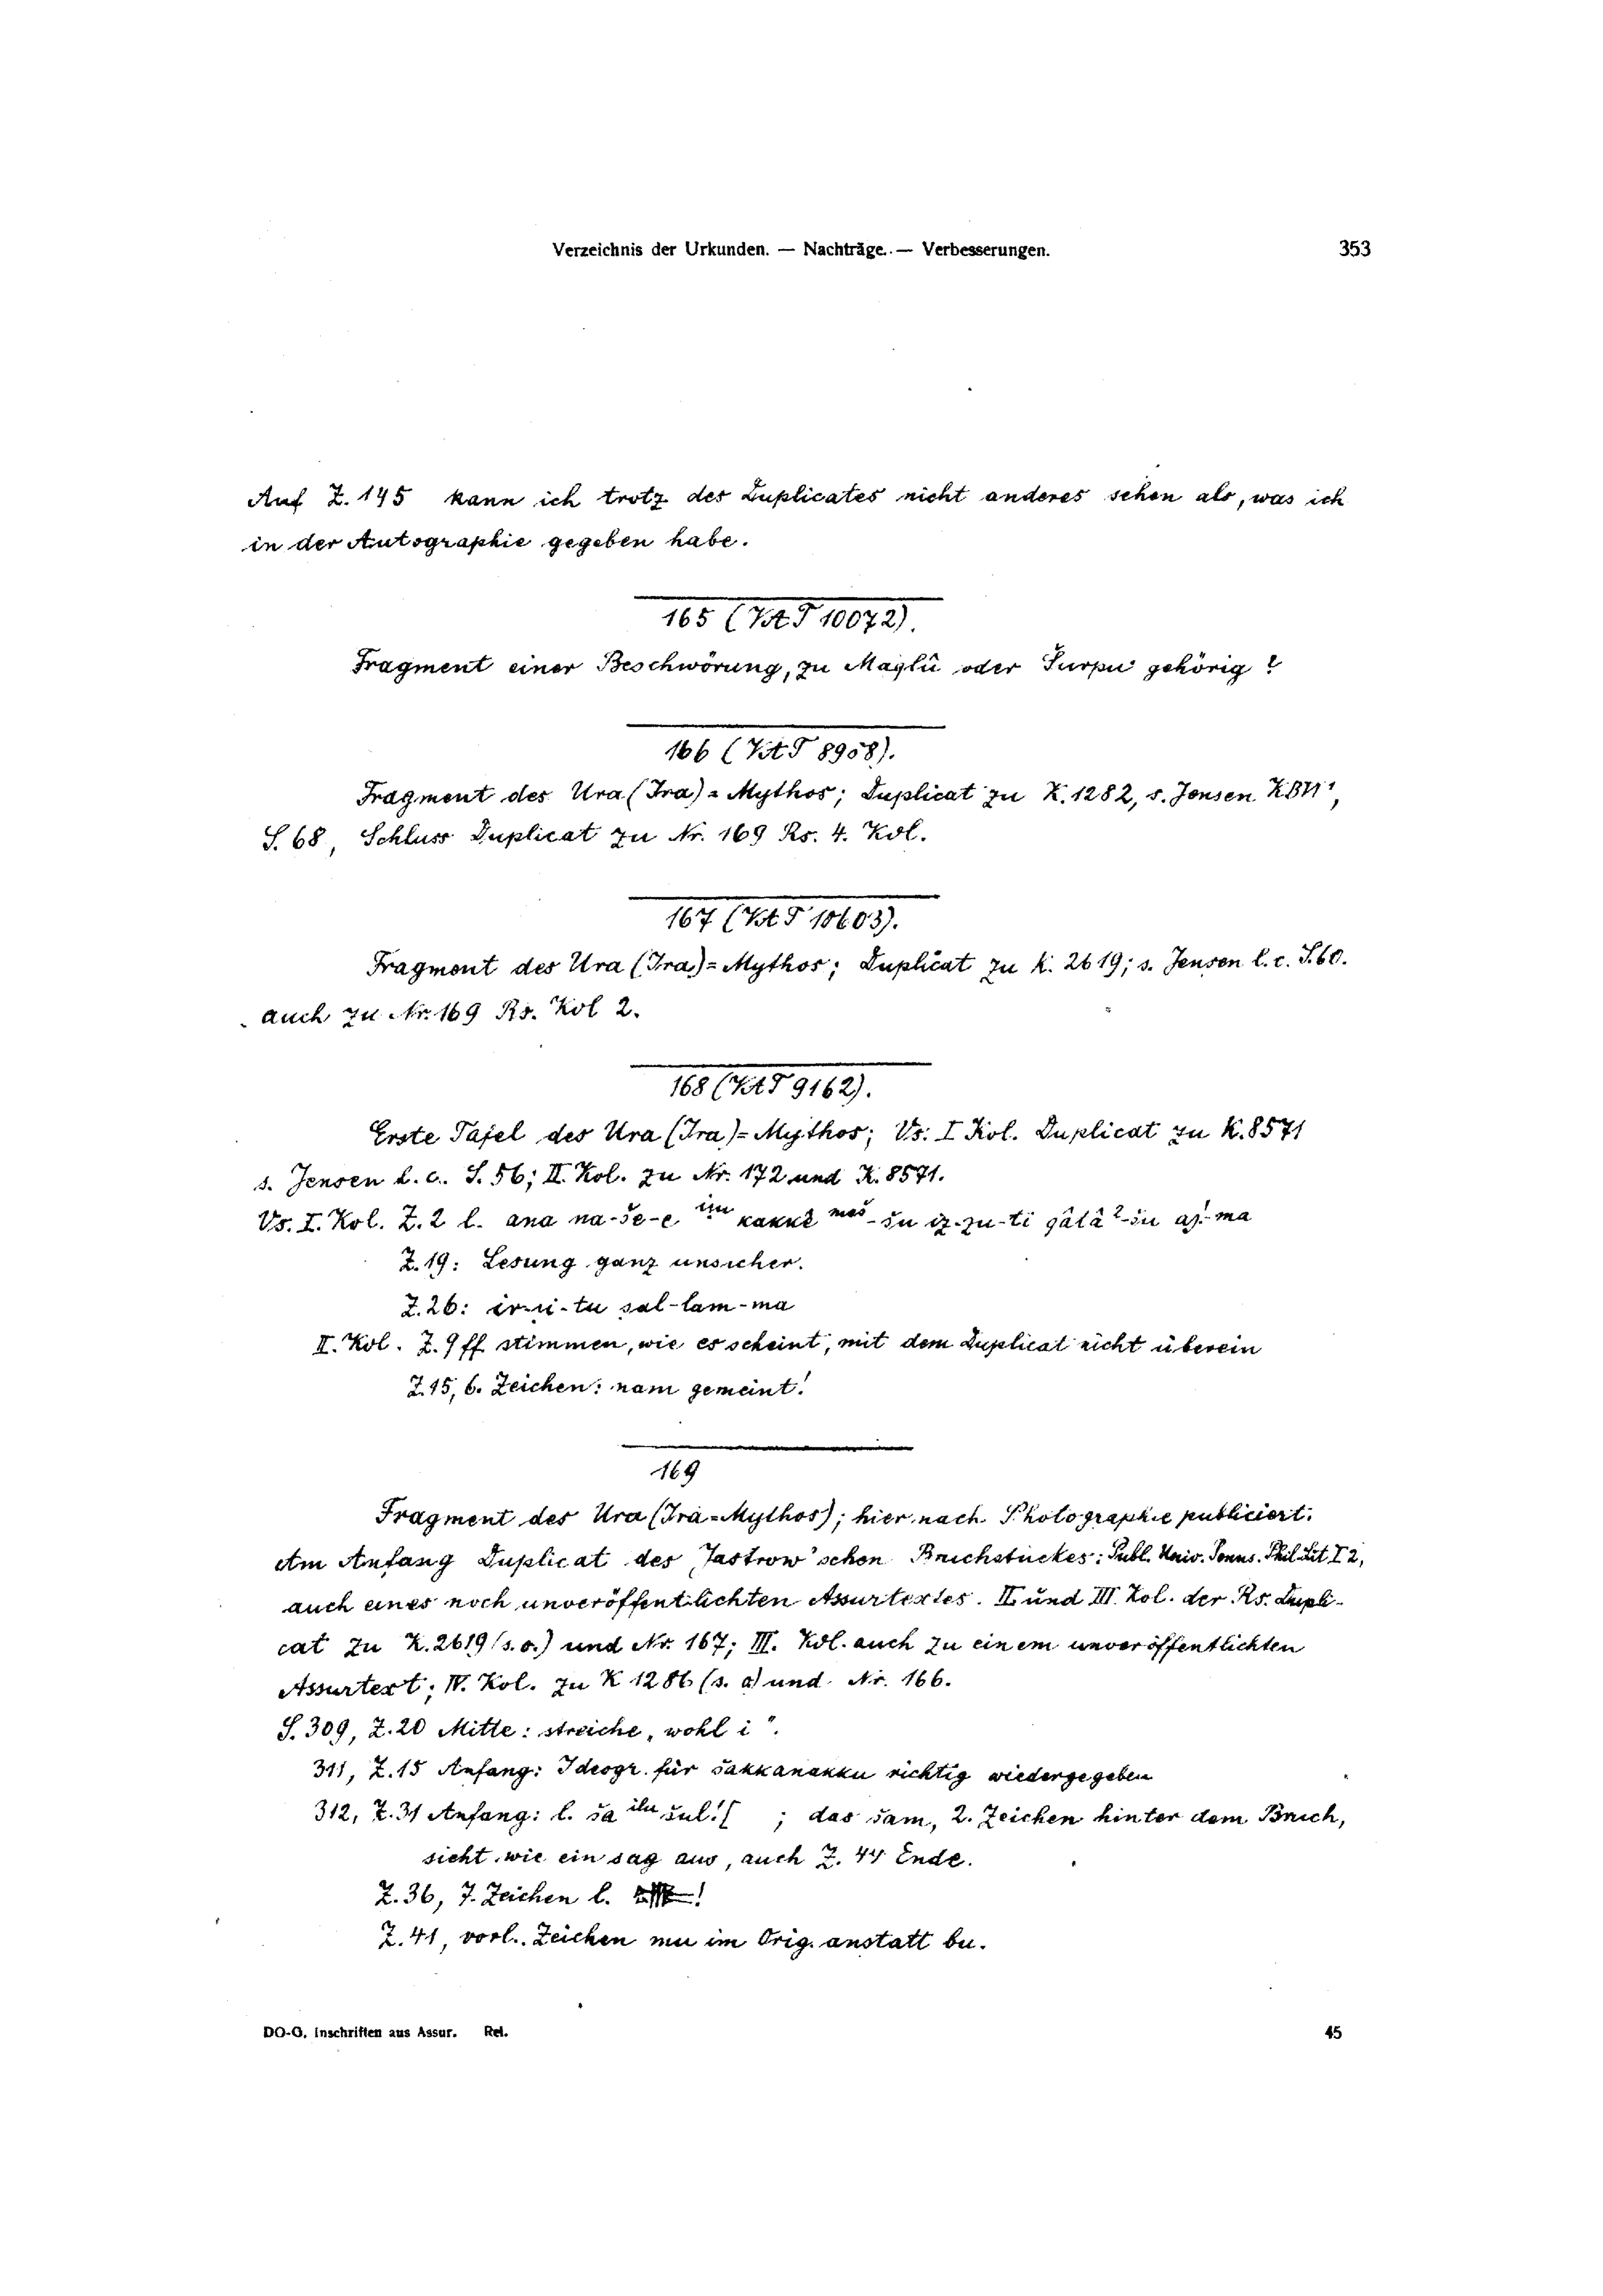 Verzeichnis der Urkunden. — Nachträge. — Verbesserungen. 353
Auf Z. 145 kann ich trotz des Duplicates nicht anderes sehen als, was ich
in der Autographie gegeben habe.
165 (VAT 10072).
Fragment einer Beschwörung, zu Maqlû oder Šurpu gehörig?
166 (VAT 8988).
Fragment des Ura (Ira)=Mythos; Duplicat zu K. 1282, s. Jensen KB VI¹,
S. 68, Schluss Duplicat zu Nr. 169 Rs. 4. Kol.
167 (VAT 10603).
Fragment des Ura (Ira)=Mythos; Duplicat zu K. 2619; s. Jensen l. c. S. 60.
auch zu Nr. 169 Rs. Kol 2.
168 (VAT 9162).
Erste Tafel des Ura (Ira)=Mythos; Vs. I Kol. Duplicat zu K. 8571
s. Jensen l. c. S. 56; II. Kol. zu Nr. 172 und K. 8571.
Vs. I. Kol. Z. 2 l. ana na-še-e kakkê meš-šu iz-zu-ti qâtâ²-šu as-ma
Z. 19: Lesung ganz unsicher.
Z. 26: šal-lam-ma
II. Kol. Z. 9 ff stimmen, wie es scheint, mit dem Duplicat nicht überein
Z. 15, 6. Zeichen: nam gemeint!
169
Fragment des Ura (Ira=Mythos); hier nach Photographie publiciert.
Am Anfang Duplicat des Jastrow'schen Bruchstückes: Publ. Univ. Penns. Phil Lit I 2,
auch eines noch unveröffentlichten Assurtextes. II und III Kol. der Rs. Dupli-
cat zu K. 2619 (s. o.) und Nr. 167; III. Kol. auch zu einem unveröffentlichten
Assurtext; IV. Kol. zu K 1286 (s. o) und Nr. 166.
S. 309, Z. 20 Mitte: streiche „wohl i".
311, Z. 15 Anfang: Ideogr. für šakkanakku richtig wiedergegeben
312, Z. 31 Anfang: l. ša ilu šul! [ ; das šam, 2. Zeichen hinter dem Bruch,
sieht wie ein sag aus, auch Z. 44 Ende.
Z. 36, 7. Zeichen l. !
Z. 41, vorl. Zeichen mu im Orig. anstatt bu.
DO-G. Inschriften aus Assur. Rel. 45